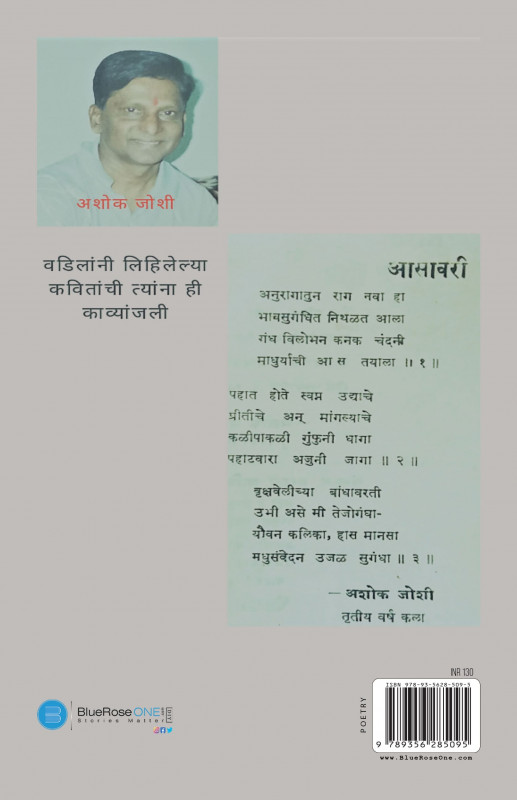 अशोक जोशी
वडिलांनी लिहिलेल्या
कवितांची त्यांना ही
काव्यांजली
आसावरी
अनुरागातुन राग नवा हा
भावसुगंधित निथळत आला
गंध विलोभन कनक चंदनी
माधुर्याची आस तयाला ॥ १ ॥
पहात होते स्वप्न उद्याचे
प्रीतीचे अन् मांगल्याचे
कळीपाकळी गुंफुनी धागा
पहाटवारा अजुनी जागा ॥ २ ॥
वृक्षवेलीच्या बांधावरती
उभी असे मी तेजोगंधा-
यौवन कलिका, हास मानसा
मधुसंवेदन उजळ सुगंधा ॥ ३ ॥
— अशोक जोशी
तृतीय वर्ष कला
BlueRoseONE
Stories Matter
POETRY
INR 130
ISBN 978-93-5628-509-5
9 789356 285095
www.BlueRoseOne.com